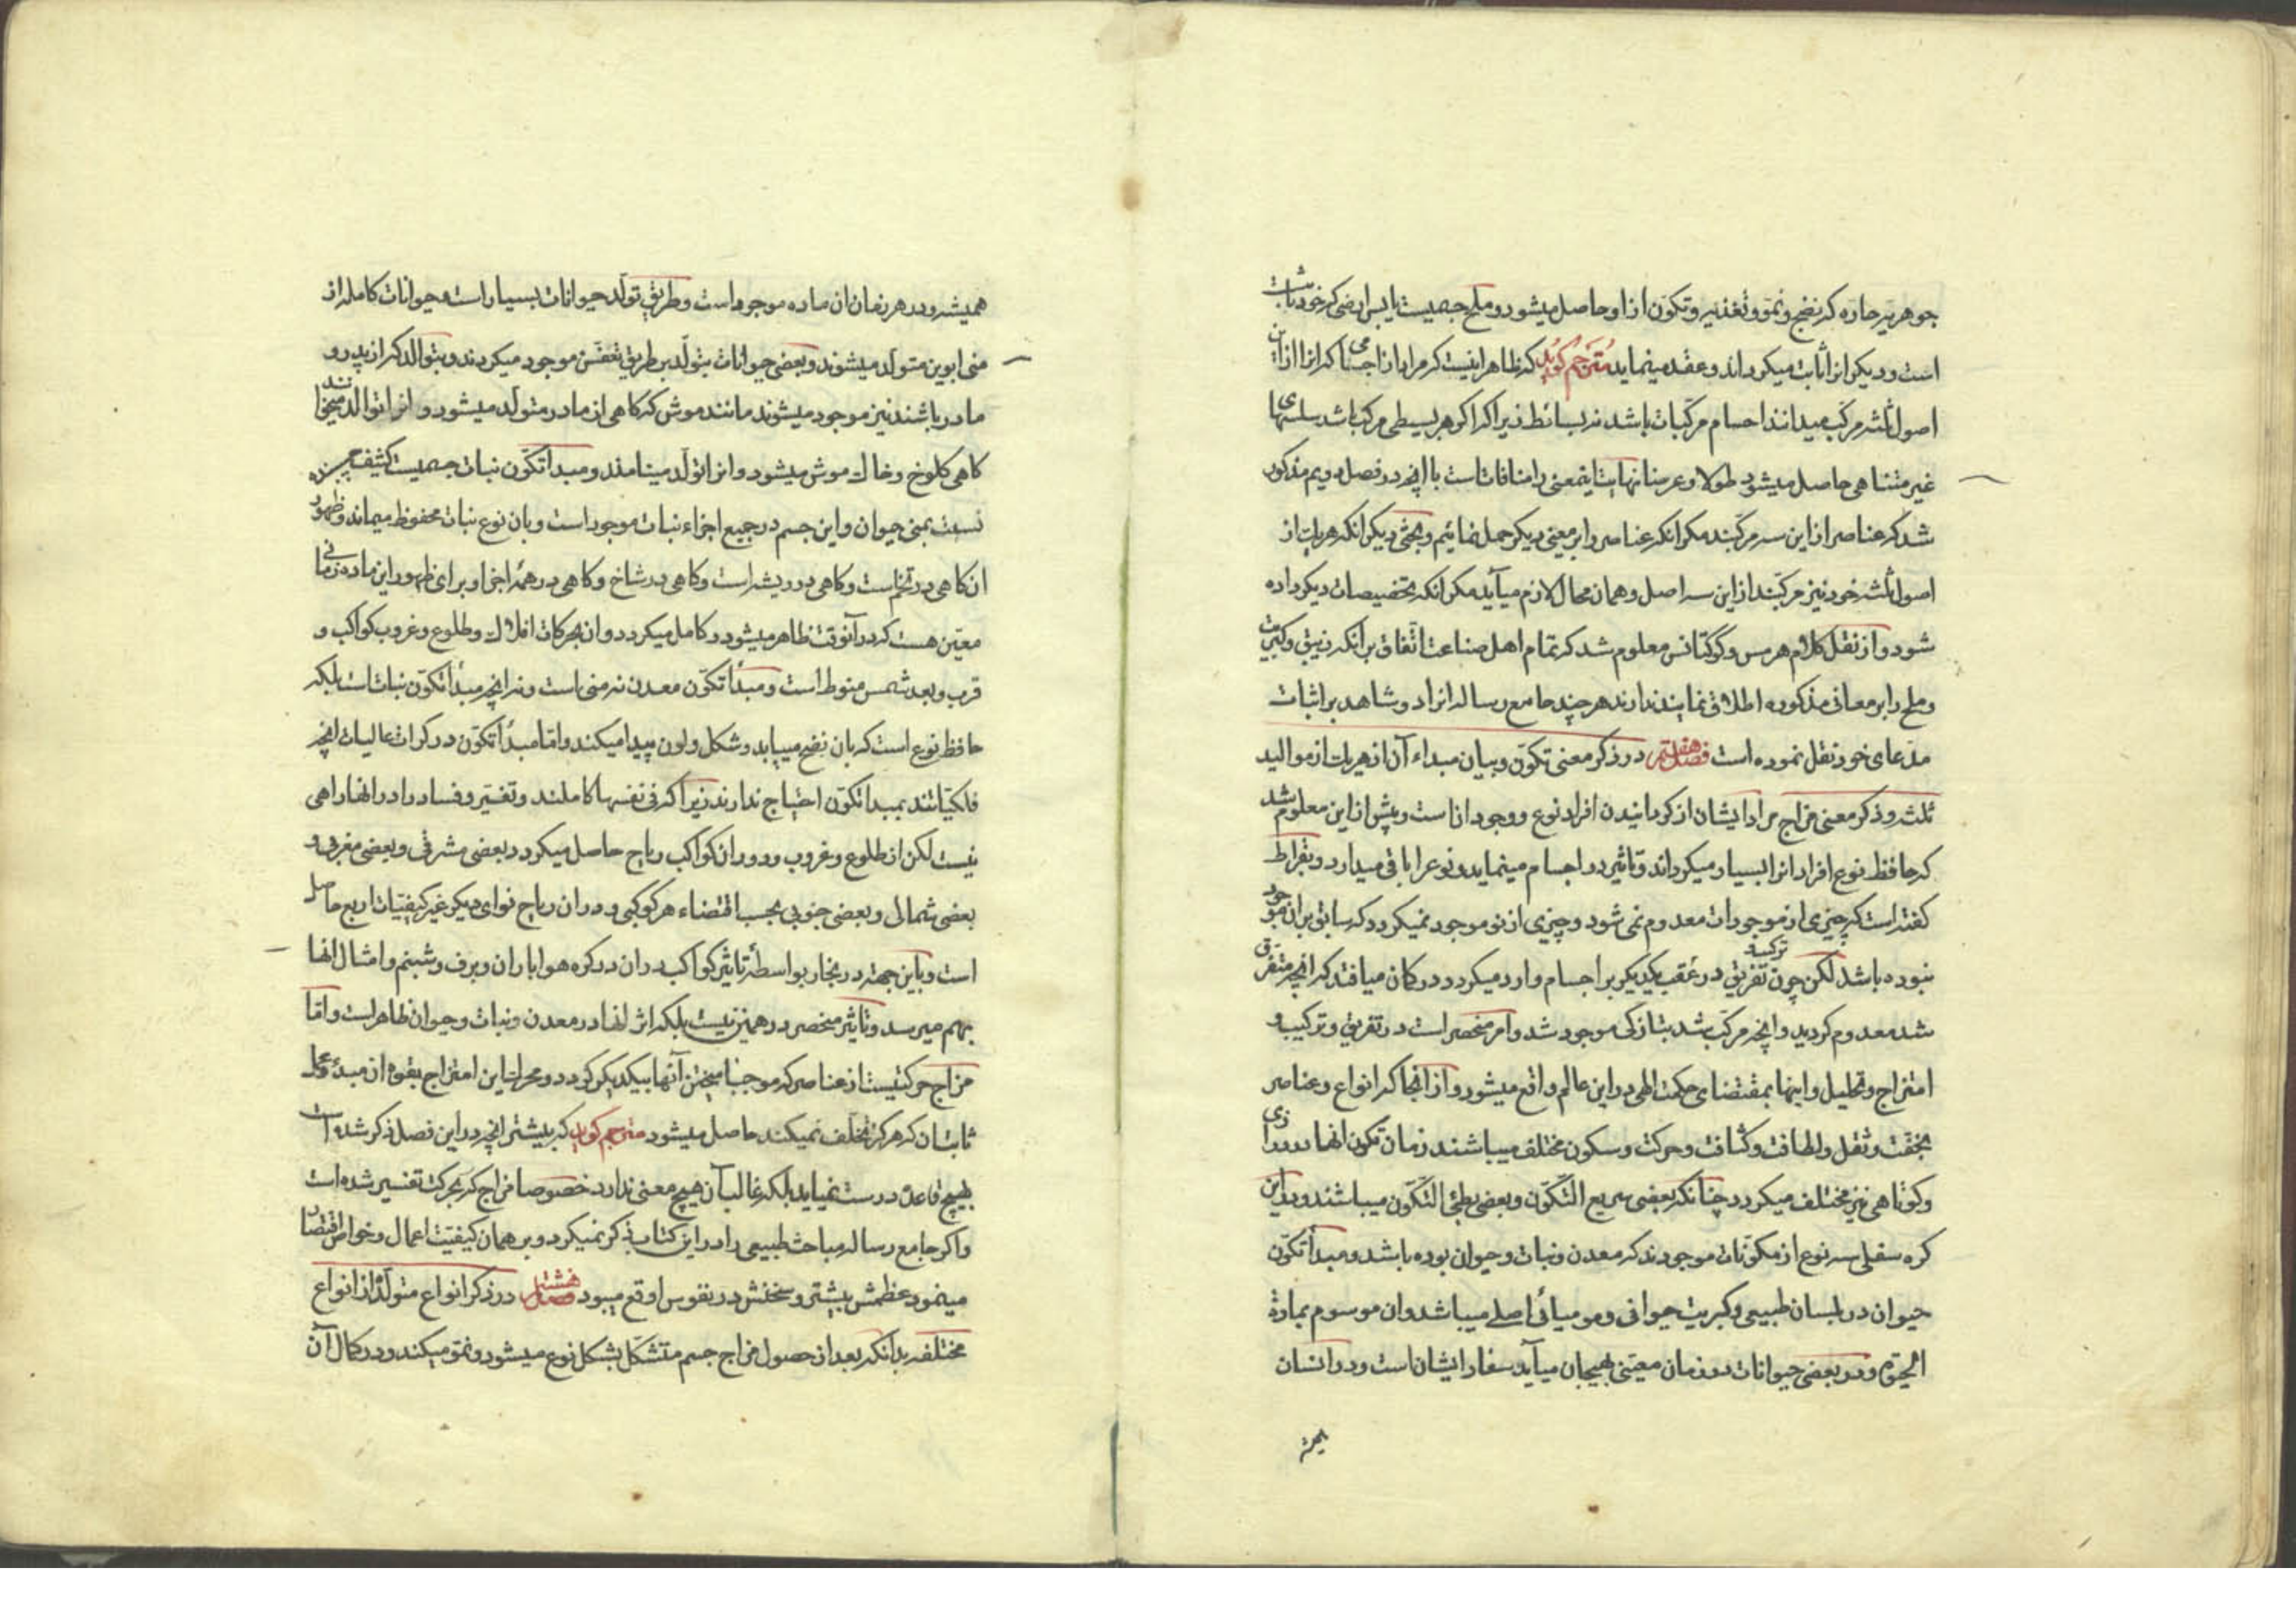 جوهریه حاره که نضج و نمو و تغذیه و تکون از او حاصل میشود و ملح جسمیست یابس ارضی که خود ثابت
است و دیگر انرا ثابت میکرداند و عقد مینماید مترجم کوید که ظاهر اینست که مراد از اجسامی که انرا از این
اصول ثلثه مرکب میدانند اجسام مرکبات باشد نه بسائط زیرا که اگر هر بسیطی مرکب باشد سلسلهای
غیر متناهی حاصل میشود طولا و عرضا نهایتا یمعنی را منافات است با انچه در فصل دویم مذکور
شد که عناصر از این سه مرکبند مکر انکه عناصر را بر معنی دیکر حمل نمائیم و بحثی دیکر انکه هر یک از
اصول ثلثه خود نیز مرکبند از این سه اصل و همان محال لازم میآید مکر انکه بتخصیصات دیکر داده
شود و از نقل کلام هرمس و کوکتانس معلوم شد که تمام اهل صناعت اتفاق بر انکه زیبق و کبریت
و ملح را بر معانی مذکوره اطلاق نمایند ندارند هر چند جامع رساله انرا دو شاهد بر اثبات
مدعای خود نقل نموده است فصل هفتم در ذکر معنی تکون و بیان مبداء آن از هر یک از موالید
ثلثه و ذکر معنی مزاج مراد ایشان از کردانیدن افراد نوع و وجود انست و پیش از این معلوم شد
که حافظ نوع افراد انرا بسیار میکرداند و تاثیر در اجسام مینماید و نوع را باقی میدارد و بقراط
کفته است که چیزی از موجودات معدوم نمی شود و چیزی از نو موجود نمیکردد که سابق بران موجود
نبوده باشد لکن چون ترکیب و تفریق در عقب یکدیکر بر اجسام وارد میکردد در کان میافتد که انچه متفرق
شد معدوم کردید و انچه مرکب شد بتازکی موجود شد و امر منحصر است در تفریق و ترکیب و
امتزاج و تحلیل و اینها بمقتضای حکمت الهی در این عالم واقع میشود و از انجا که انواع و عناصر
بخفت و ثقل و لطافت و کثافت و حرکت و سکون مختلف میباشند زمان تکون انها در درازی
و کوتاهی نیز مختلف میکردد چنانکه بعضی سریع التکون و بعضی بطئ التکون میباشند و در این
کره سفلی سه نوع از مکونات موجودند که معدن و نبات و حیوان بوده باشد و مبدأ تکون
حیوان در بلسان طبیعی و کبریت حیوانی و مومیائی اصلی میباشد و ان موسوم بماده
الحیوة و در بعضی حیوانات در زمان معینی بهیجان میآید سفاد ایشان است و در انسان
همیشه
همیشه و در هر زمان ان ماده موجود است و طریق تولد حیوانات بسیار است حیوانات کامله از
منی ابوین متولد میشوند و بعضی حیوانات بتولد بر طریق تعفن موجود میکردند و بتوالد که از پدر و
مادر باشند نیز موجود میشوند مانند موش که کاهی از مادر متولد میشود و انرا توالد میخوانند
کاهی کلوخ و خاک موش میشود و انرا تولد مینامند و مبدأ تکون نبات جسمیست کثیف
نسبت بمنی حیوان و این جسم در جمیع اجزاء نبات موجود است و بان نوع نبات محفوظ میماند و ظهور
ان کاهی در تخم است و کاهی در ریشه است و کاهی در شاخ و کاهی در همهٔ اجزا و برای ظهور این ماده زمانی
معین هست که در آنوقت ظاهر میشود و کامل میکردد و ان بحرکات افلاک و طلوع و غروب کواکب و
قرب و بعد شمس منوط است و مبدأ تکون معدن نه منی است و نه انچه مبدأ تکون نبات است بلکه
حافظ نوع است که بان نضج مییابد و شکل و لون پیدا میکند و اما مبدأ تکون در کرات عالیات انچه
فلکیاتند بمبدأ تکون احتیاج ندارند زیرا که فی نفسها کاملند و تغییر و فساد را در انها راهی
نیست لکن از طلوع و غروب و دوران کواکب ریاح حاصل میکردد بعضی مشرقی و بعضی مغربی و
بعضی شمالی و بعضی جنوبی بحسب اقتضاء هر کوکبی و در ان ریاح نوای دیکر غیر کیفیات اربع حاصل
است و باین جهته در بخار بواسطهٔ تاثیر کواکب در ان در کره هوا باران و برف و شبنم و امثال انها
بهم میرسد و تاثیر منحصر در همین نیست بلکه اثر انها در معدن و نبات و حیوان ظاهر است و اما
مزاج حرکتیست از عناصر که موجب امیختن آنها بیکدیکر کردد و محرک این امتزاج بقوه از مبدء
ثابتان که هرکز تخلف نمیکند حاصل میشود مترجم کوید که بیشتر انچه در این فصل ذکر شده است
بهیچ قاعدهٔ درست نمیاید بلکه غالب آن هیچ معنی ندارد خصوصا مزاج که بحرکت تفسیر شده است
و اکر جامع رساله مباحث طبیعی را در این کتاب ذکر نمیکرد و بر همان کیفیت اعمال و خواص اقتصار
مینمود عظمش بیشتر و سخنش در نفوس اوقع میبود فصل هشتم در ذکر انواع متولده از انواع
مختلفه بدانکه بعد از حصول مزاج جسم متشکل بشکل نوع میشود و نمو میکند و در کمال آن